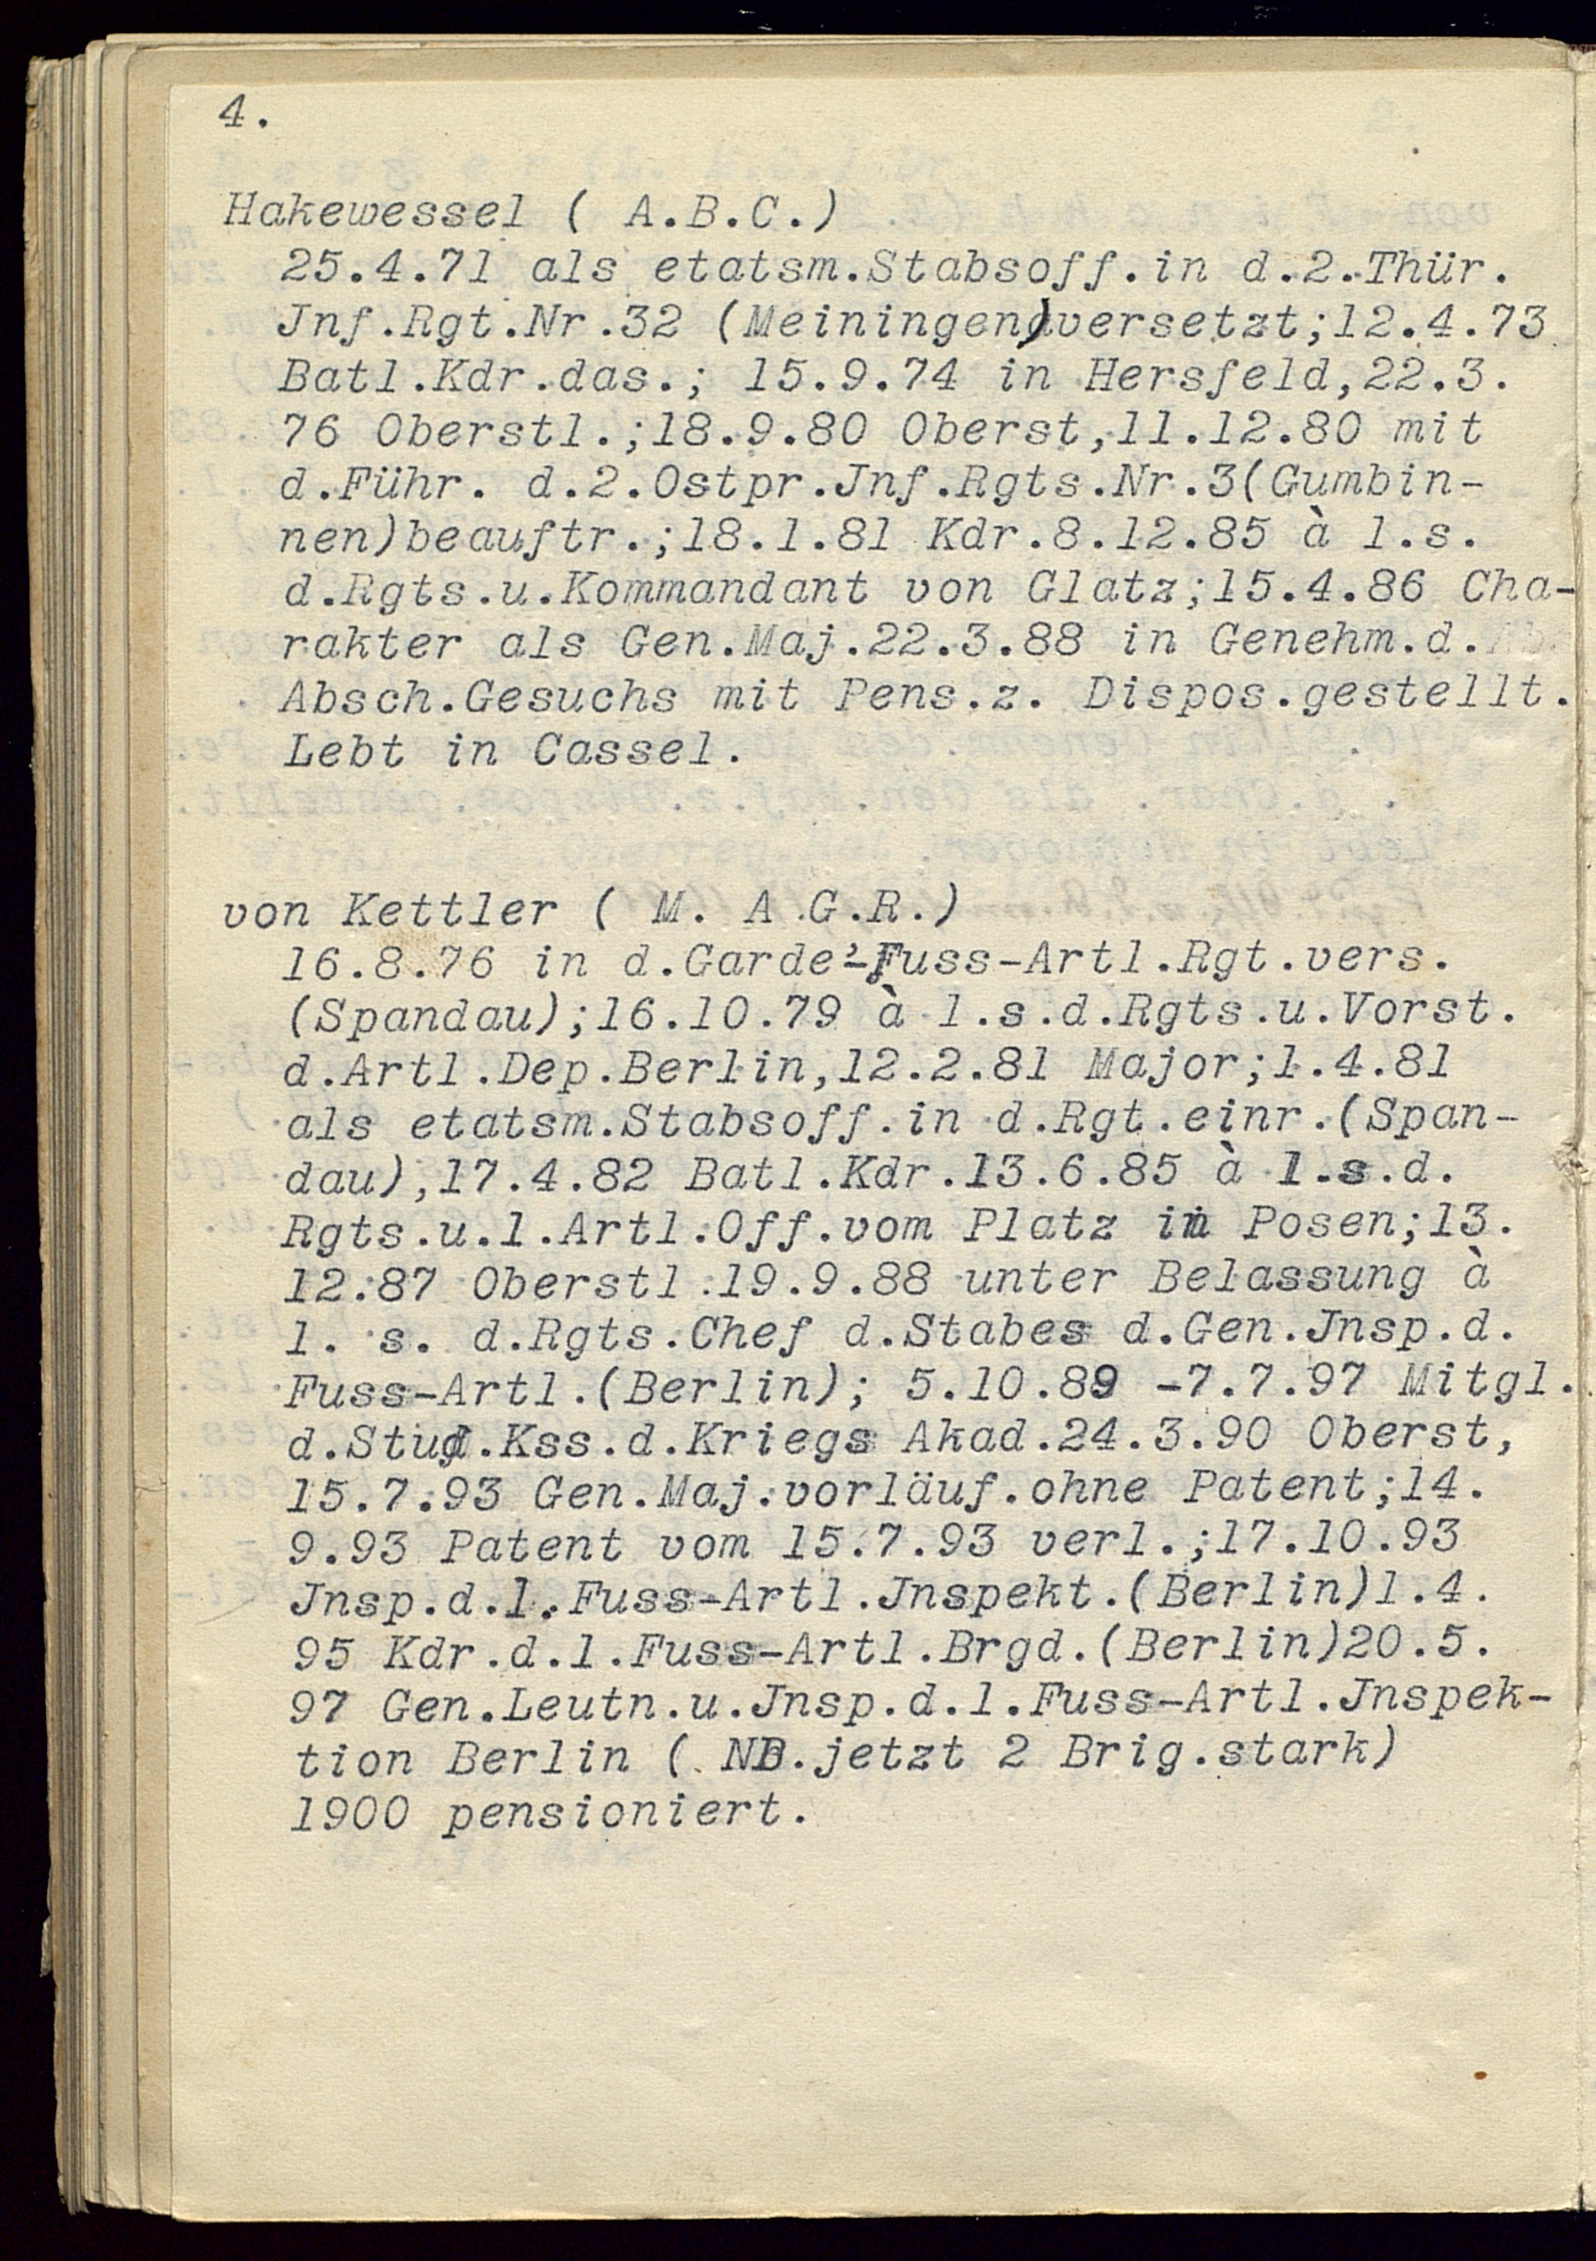 4.
Hakewessel ( A.B.C.)
25.4.71 als etatsm.Stabsoff.in d.2.Thür.
Jnf.Rgt.Nr.32 (Meiningen)versetzt;12.4.73
Batl.Kdr.das.; 15.9.74 in Hersfeld,22.3.
76 Oberstl.;18.9.80 Oberst,11.12.80 mit
d.Führ. d.2.Ostpr.Jnf.Rgts.Nr.3(Gumbin-
nen)beauftr.;18.1.81 Kdr.8.12.85 à l.s.
d.Rgts.u.Kommandant von Glatz;15.4.86 Cha-
rakter als Gen.Maj.22.3.88 in Genehm.d.
Absch.Gesuchs mit Pens.z. Dispos.gestellt.
Lebt in Cassel.
von Kettler ( M. A.G.R.)
16.8.76 in d.Garde-Fuss-Artl.Rgt.vers.
(Spandau);16.10.79 à l.s.d.Rgts.u.Vorst.
d.Artl.Dep.Berlin,12.2.81 Major;1.4.81
als etatsm.Stabsoff.in d.Rgt.einr.(Span-
dau),17.4.82 Batl.Kdr.13.6.85 à l.s.d.
Rgts.u.1.Artl.Off.vom Platz in Posen;13.
12.87 Oberstl.19.9.88 unter Belassung à
l. s. d.Rgts.Chef d.Stabes d.Gen.Jnsp.d.
Fuss-Artl.(Berlin); 5.10.89 -7.7.97 Mitgl.
d.Stud.Kss.d.Kriegs Akad.24.3.90 Oberst,
15.7.93 Gen.Maj.vorläuf.ohne Patent;14.
9.93 Patent vom 15.7.93 verl.;17.10.93
Jnsp.d.1.Fuss-Artl.Jnspekt.(Berlin)1.4.
95 Kdr.d.1.Fuss-Artl.Brgd.(Berlin)20.5.
97 Gen.Leutn.u.Jnsp.d.1.Fuss-Artl.Jnspek-
tion Berlin ( NB.jetzt 2 Brig.stark)
1900 pensioniert.